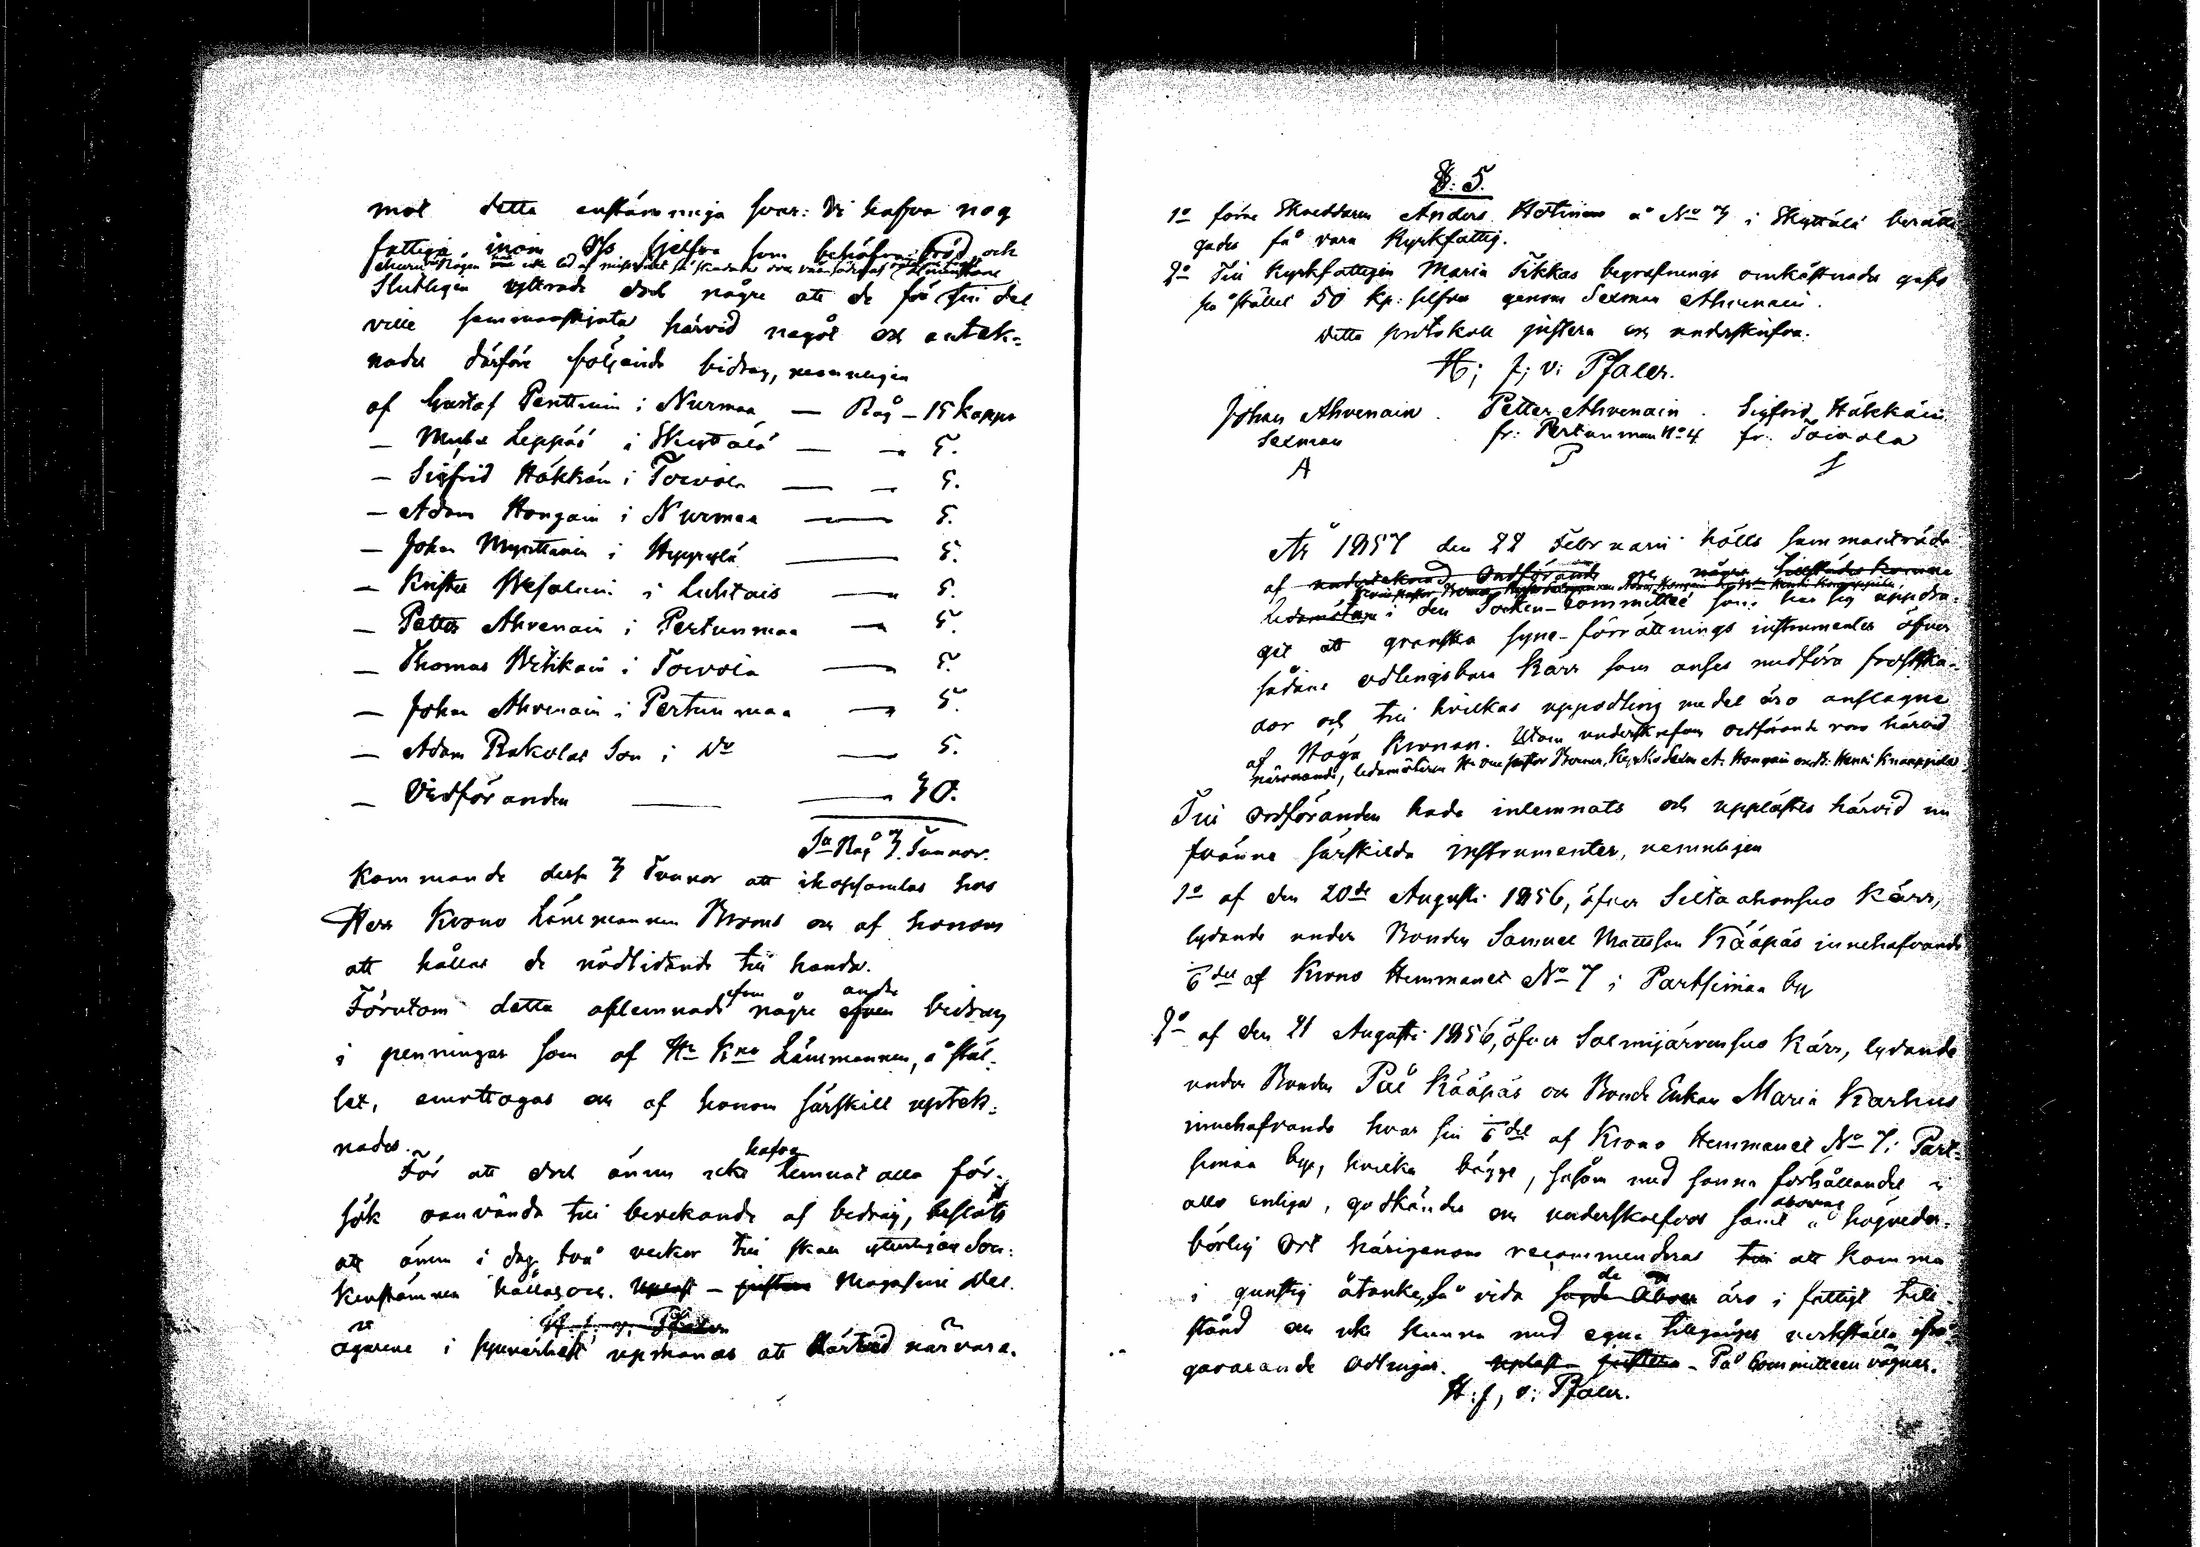 mot detta enstämmiga svar: Vi hafva nog
fattiga inom Oss sjelfva som behöfva bröd och
Slutligen yttrade dock några att de för sin del
ville sammanskjuta härvid något och anteck-
nades därföre följande bidrag, nemnligen
af Gustaf Penttinen i Nurmaa — Råg — 15 kappr
— Leppää i Skyttälä — — 5.
— Sigfrid Häkkäin i Toivola — — 5.
— Adam Hongain i Nurmaa — 5.
— Johan Mynttinen i Hyyrylä — 5.
— Krister Vesalain i Luhtais — 5.
— Petter Ahvenain i Pertunmaa — 5.
— Thomas i Toivola — 5.
— Johan Ahvenain i Pertunmaa — 5.
— Adam Pakolas Son i Do — 5.
— Ordföranden — 30.
Sa Råg 3. Tunnor.
kommande dessa 3 Tunnor att ihopsamlas hos
Herr Krono Länsmannen Broms och af honom
att hållas de nödlidande till handa.
Förutom detta aflemnade några andra bidrag
i penningar som af Hr Kno Länsmannen, å stäl-
let, emottogos och af honom särskilt uptek-
nades.
För att dock ännu icke hafva lemnat alla för-
sök oanvända till berekande af bidrag, beslöts
att ännu i dag två veckor till skall ytterligare Soc-
kenstämma hållas och. Uplast — justera Magasins Del
H. J. v. Pfaler
ägarene i synnerhet upmanas att närvara.
§: 5.
1o förre Skräddaren Anders Hotinen å No 3 i Skyttälä
gades få vara Kyrkfattig.
2o Till Kyrkfattigen Maria Tikkas begrafnings omkåstnader gafs
på stället 50 kp: silfver genom Sexman Ahvenain.
Detta protokoll justera och underskrifva:
H; J; v: Pfaler.
Johan Ahvenain. Petter Ahvenain. Sigfrid Häkkäin
Sexman fr: Pertunmaa No 4 fr: Toivola
A P S
År 1857 den 22 Februarii hölls sammanträde
af undertecknad Ordförande och några
Ledamöter i den Socken-Committée som har sig uppdra-
git att granska syne-förrättnings instrumenter öfver
sådane odlingsbara Kärr som anses medföra frostska-
dor och till hvilkas uppodling medel äro anslagne
af Höga Kronan. Utom underskrefven ordförande voro härvid
närvarande, ledamöterne
Till ordföranden hade inlemnats och upplästes härvid nu
tvänne särskilda instrumenter, nemnligen
1o af den 20de Augusti 1856, öfver Siltaahonsuo Kärr,
lydande under Bonden Samuel Mattsson Kääpäs innehafvande
1/6 del af Krono Hemmanet No 7 i Partsimaa by
2o af den 21 Augusti 1856, öfver Salmijärvensuo Kärr, lydande
under Bonden Pål Kääpäs och Bonde Enkan Maria Karhus
innehafvande hvar sin 1/6 del af Krono Hemmanet No 7 i Part-
simaa by, hvilka bägge, såsom med sanna förhållandet i
allo enliga, godkändes och underskrefvos samt å högveder-
börlig Ort härigenom recommenderas till att komma
i gunstig åtanke, så vida de äro i fattigt till-
stånd och icke kunna med egna tillgångar verkställa ifrå-
gavarande odlingar. Uplast justera — På Committeen vägnar.
H: J, v: Pfaler.